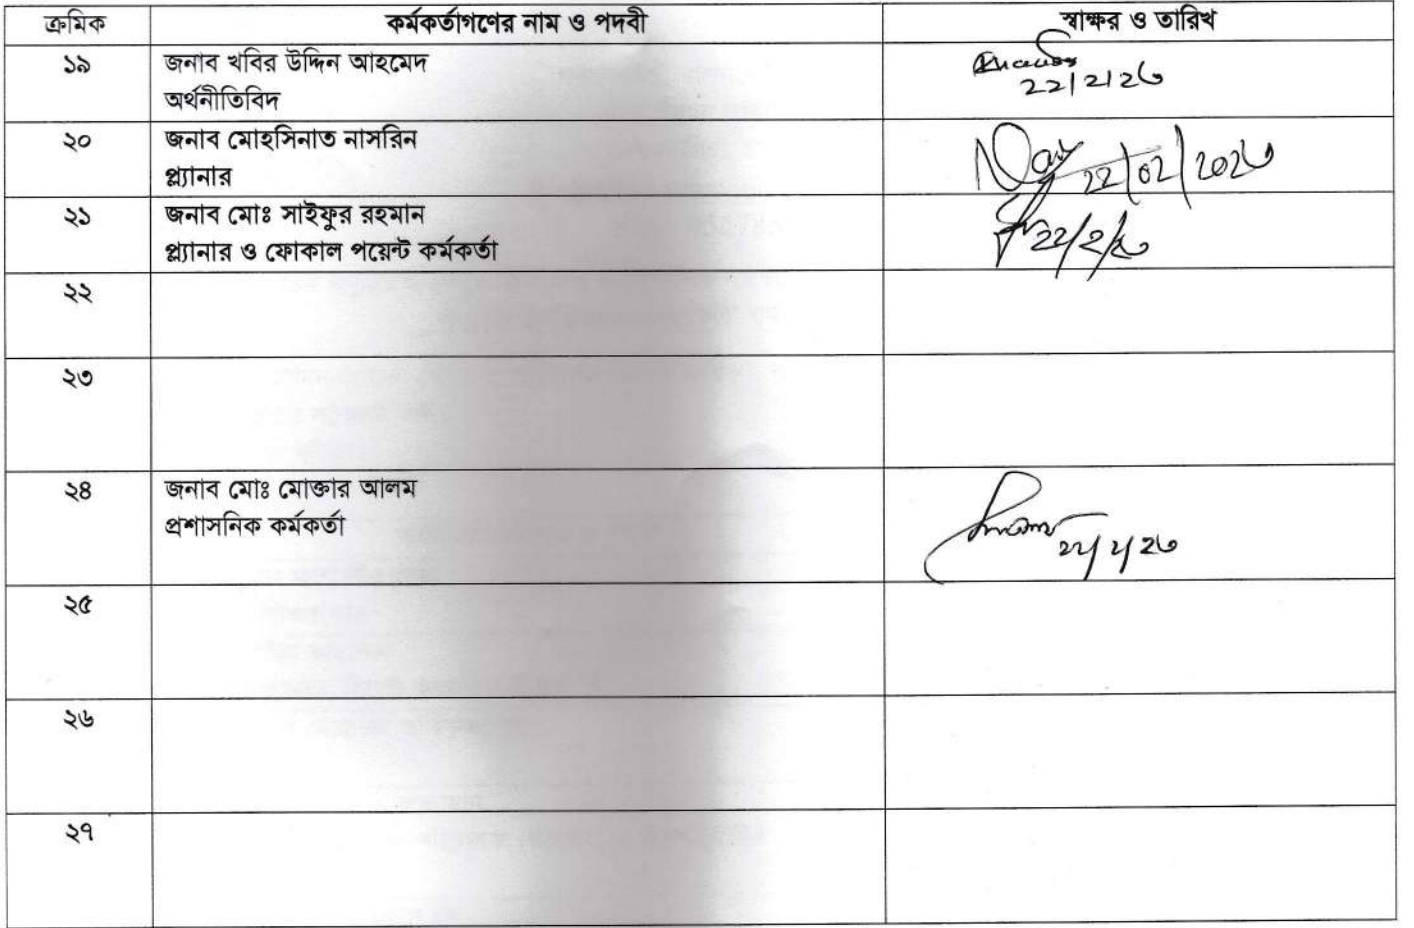 ক্রমিক কর্মকর্তাগণের নাম ও পদবী স্বাক্ষর ও তারিখ
১৯ জনাব খবির উদ্দিন আহমেদ
অর্থনীতিবিদ
22/2/26
২০ জনাব মোহসিনাত নাসরিন
প্ল্যানার
22/02/2026
২১ জনাব মোঃ সাইফুর রহমান
প্ল্যানার ও ফোকাল পয়েন্ট কর্মকর্তা
22/2/26
২২
২৩
২৪ জনাব মোঃ মোক্তার আলম
প্রশাসনিক কর্মকর্তা
22/2/26
২৫
২৬
২৭